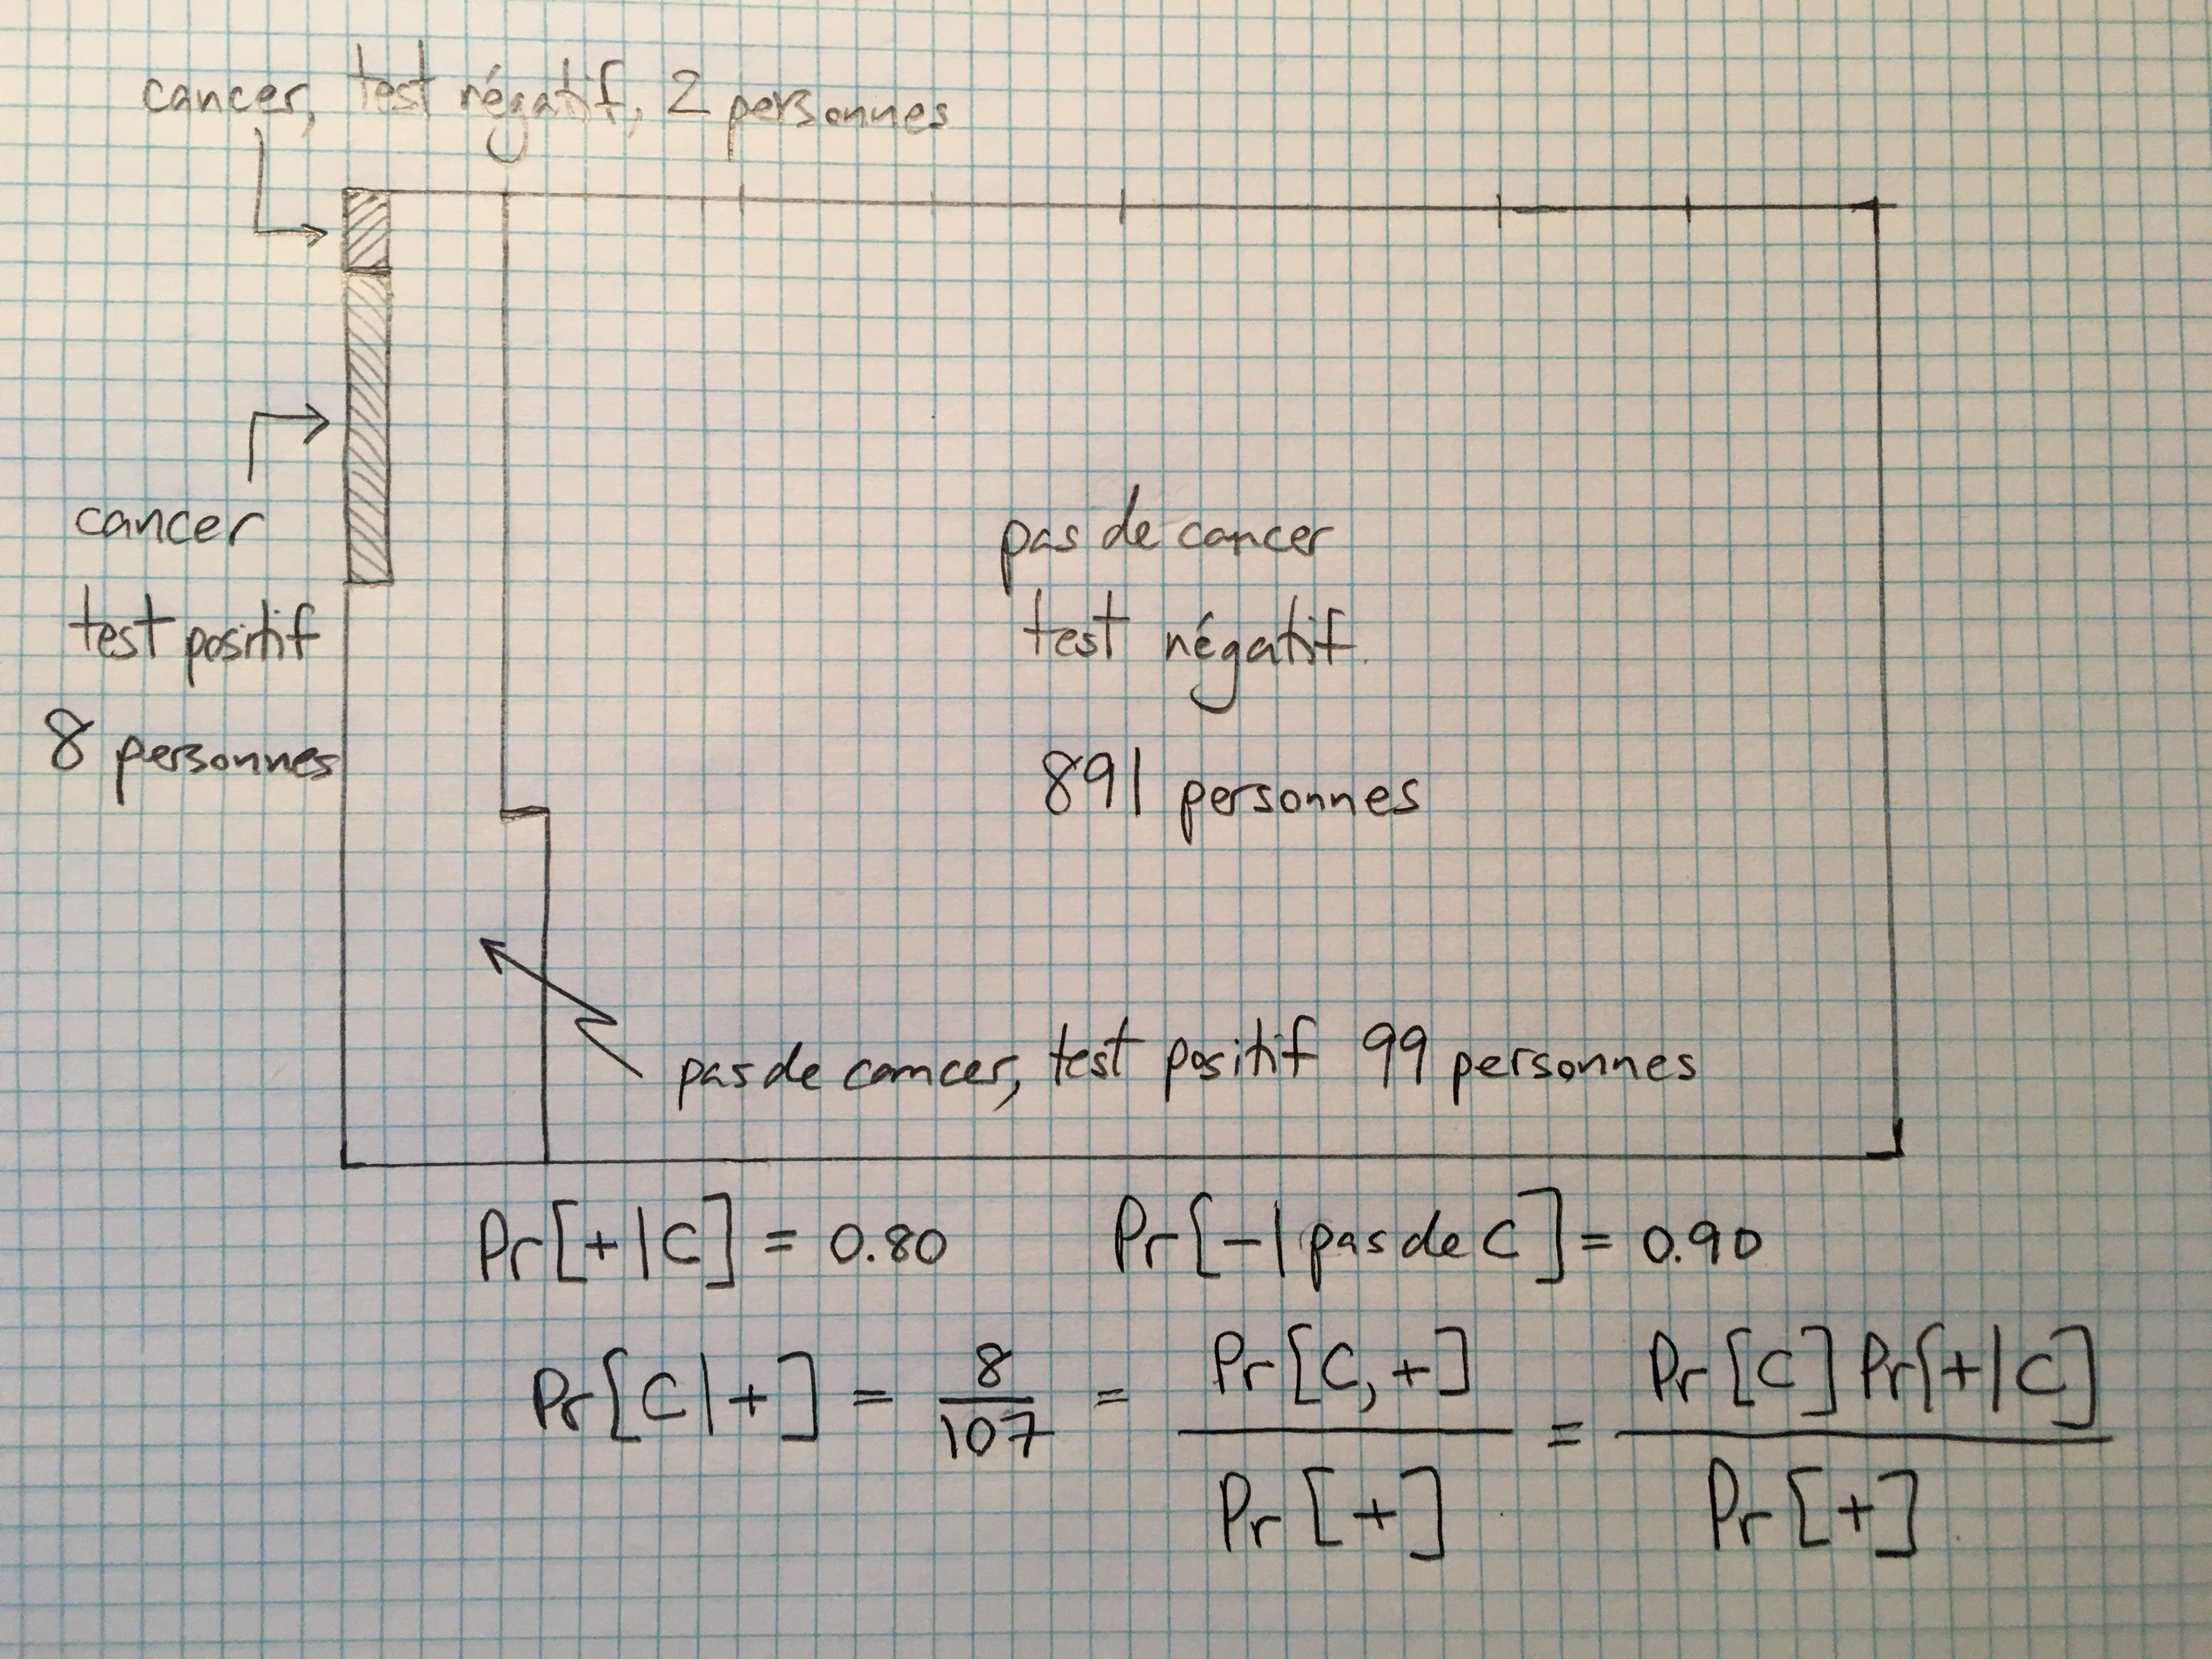 cancer, test négatif, 2 personnes
cancer
test positif
8 personnes
pas de cancer
test négatif
891 personnes
pas de cancer, test positif 99 personnes
Pr[+|C] = 0.80 Pr[-|pas de C] = 0.90
Pr[C|+] = 8/107 = Pr[C,+]/Pr[+] = Pr[C]Pr[+|C]/Pr[+]